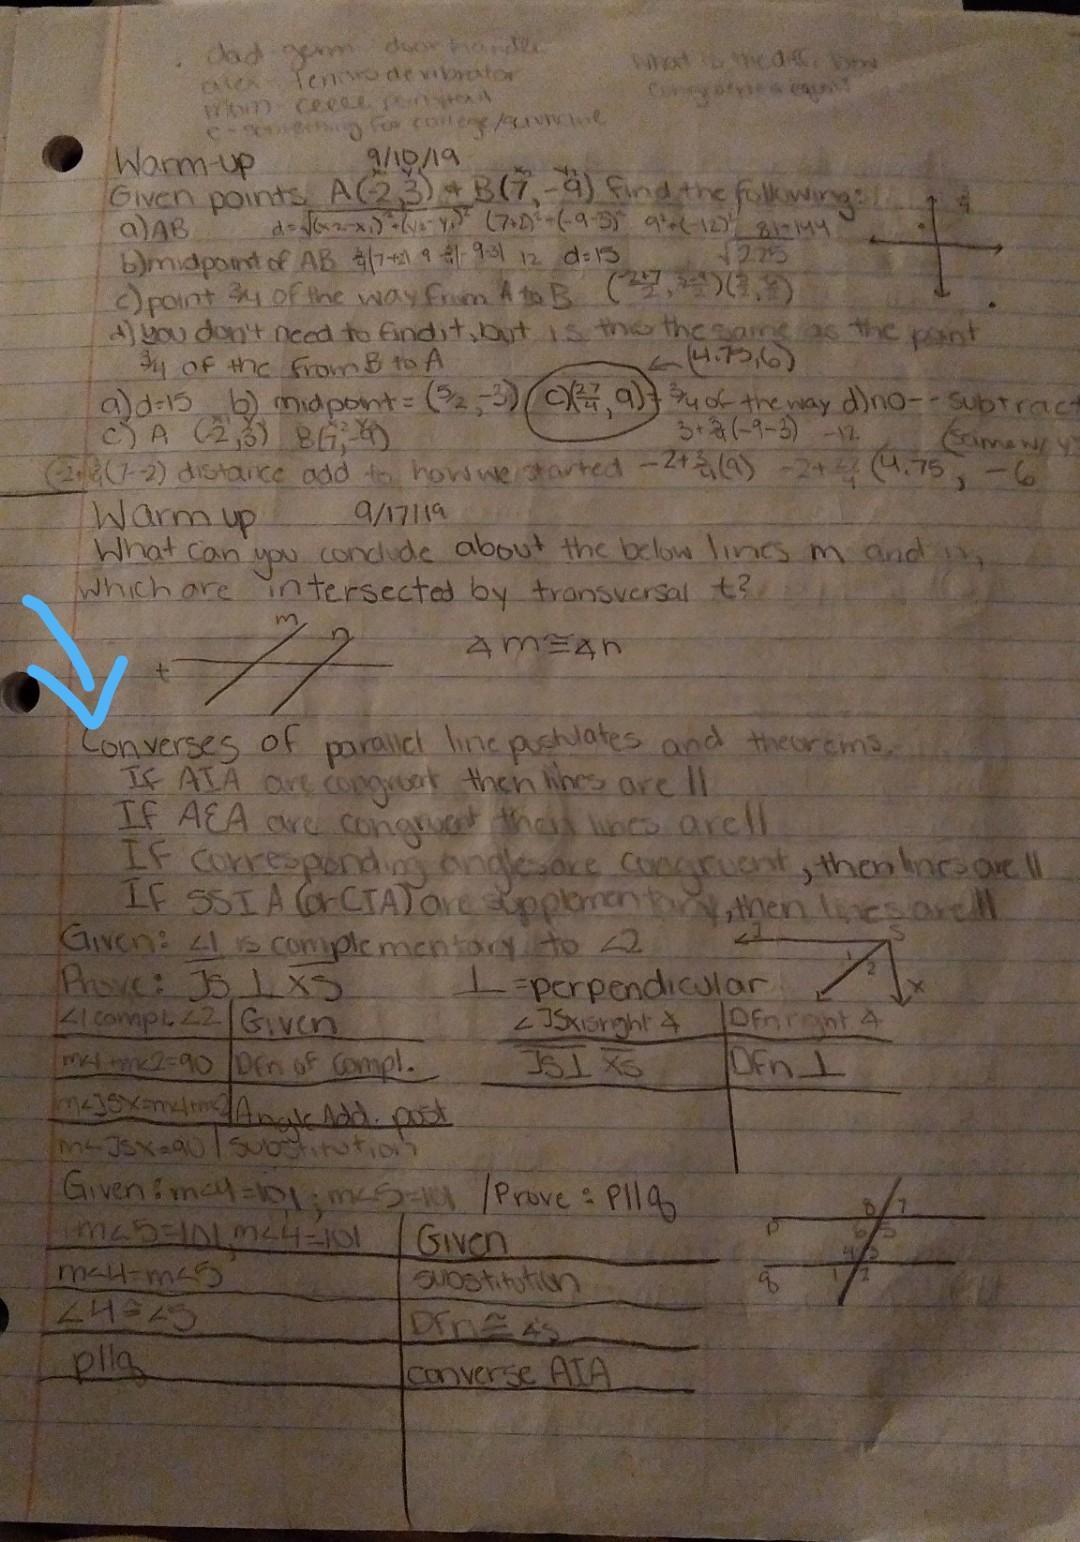 dad germ door handle
What is the diff. btw
Warm-up 9/10/19
Given points A(-2,3) + B(7,-9) find the following:
a) AB d=√(x2-x1)²+(y2-y1)² (7+2)²+(-9-3)² 9²+(-12)² 81+144
b) midpoint of AB 9 12 d=15 √225
c) point 3/4 of the way from A to B
d) you don't need to find it, but is this the same as the point
3/4 of the from B to A ← (4.75,6)
a) d=15 b) midpoint = (5/2, -3) c)(27/4, 9) 3/4 of the way d) no -- subtract
c) A (-2,3) B(7,-9) 3+3/4(-9-3) -12 (same w/ y
(7-2) distance add to how we started -2+3/4(9) -2+27/4 (4.75, -6
Warm up 9/17/19
What can you conclude about the below lines m and n,
which are intersected by transversal t?
m n
t ∡m≅∡n
Converses of parallel line postulates and theorems.
If AIA are congruent then lines are ||
If AEA are congruent then lines are ||
If corresponding angles are congruent, then lines are ||
If SSIA (or CIA) are supplementary, then lines are ||
Given: ∠1 is complementary to ∠2
J S
1 2
X
Prove: JS ⊥ XS ⊥ = perpendicular
∠1 compl. ∠2 Given ∠JSX is right ∡ Dfn right ∡
m∠1+m∠2=90 Dfn of compl. JS ⊥ XS Dfn ⊥
m∠JSX=m∠1+m∠2 Angle Add. post
m∠JSX=90 substitution
Given: m∠4=101; m∠5=101 / Prove: p||q
m∠5=101, m∠4=101 Given
m∠4=m∠5 substitution
∠4≅∠5 Dfn ≅ ∠s
p||q converse AIA
8 7
p 6 5
4 3
q 1 2